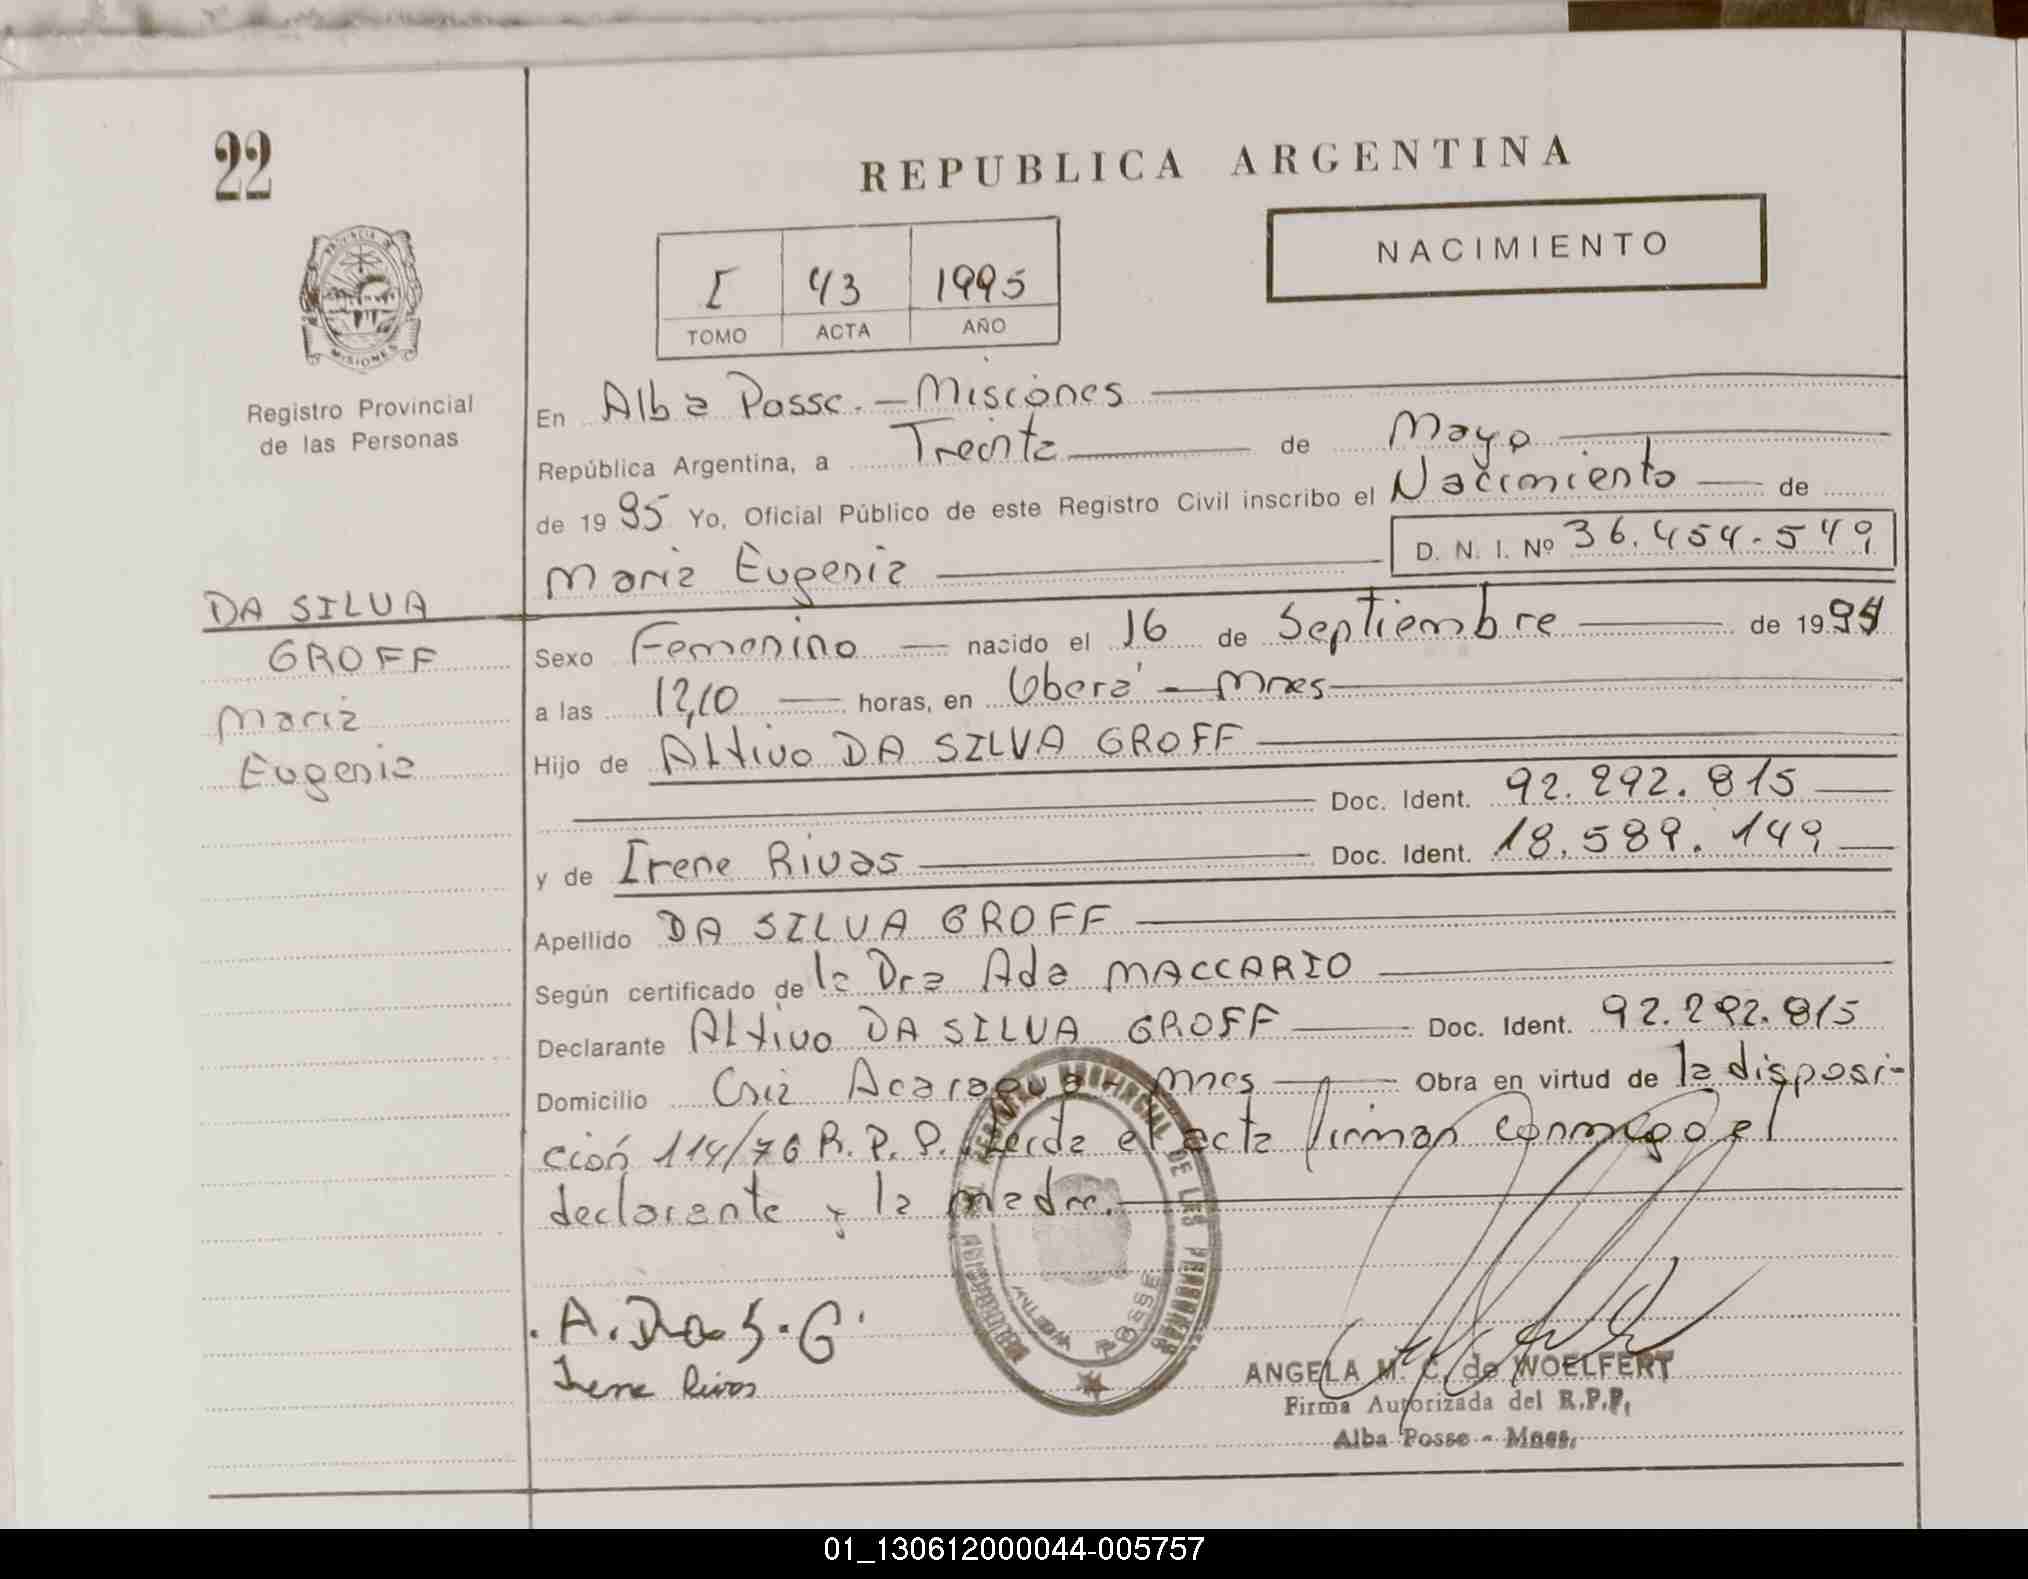 22
REPUBLICA ARGENTINA
NACIMIENTO
I 43 1995
TOMO ACTA AÑO
PROVINCIA DE
MISIONES
Registro Provincial
de las Personas
En Alba Posse. - Misiones
República Argentina, a Treinta de Mayo
de 1995 Yo, Oficial Público de este Registro Civil inscribo el Nacimiento de
Maria Eugenia D. N. I. Nº 36.454.549
DA SILVA
GROFF
Maria
Eugenia
Sexo Femenino nacido el 16 de Septiembre de 1994
a las 12,10 horas, en Oberá - Mnes
Hijo de Altivo DA SILVA GROFF
Doc. Ident. 92.292.815
y de Irene Rivas Doc. Ident. 18.589.149
Apellido DA SILVA GROFF
Según certificado de la Dra Ada MACCARIO
Declarante Altivo DA SILVA GROFF Doc. Ident. 92.292.815
Domicilio Cnia Acaragua - Mnes Obra en virtud de la disposi-
ción 114/76 R. P. P. Leida el acta firman conmigo el
declarante y la madre.
REGISTRO PROVINCIAL DE LAS PERSONAS
POSSE
A. Da S. G.
Irene Rivas
ANGELA M. C. de WOELFERT
Firma Autorizada del R.P.P.
Alba Posse - Mnes.
01_130612000044-005757